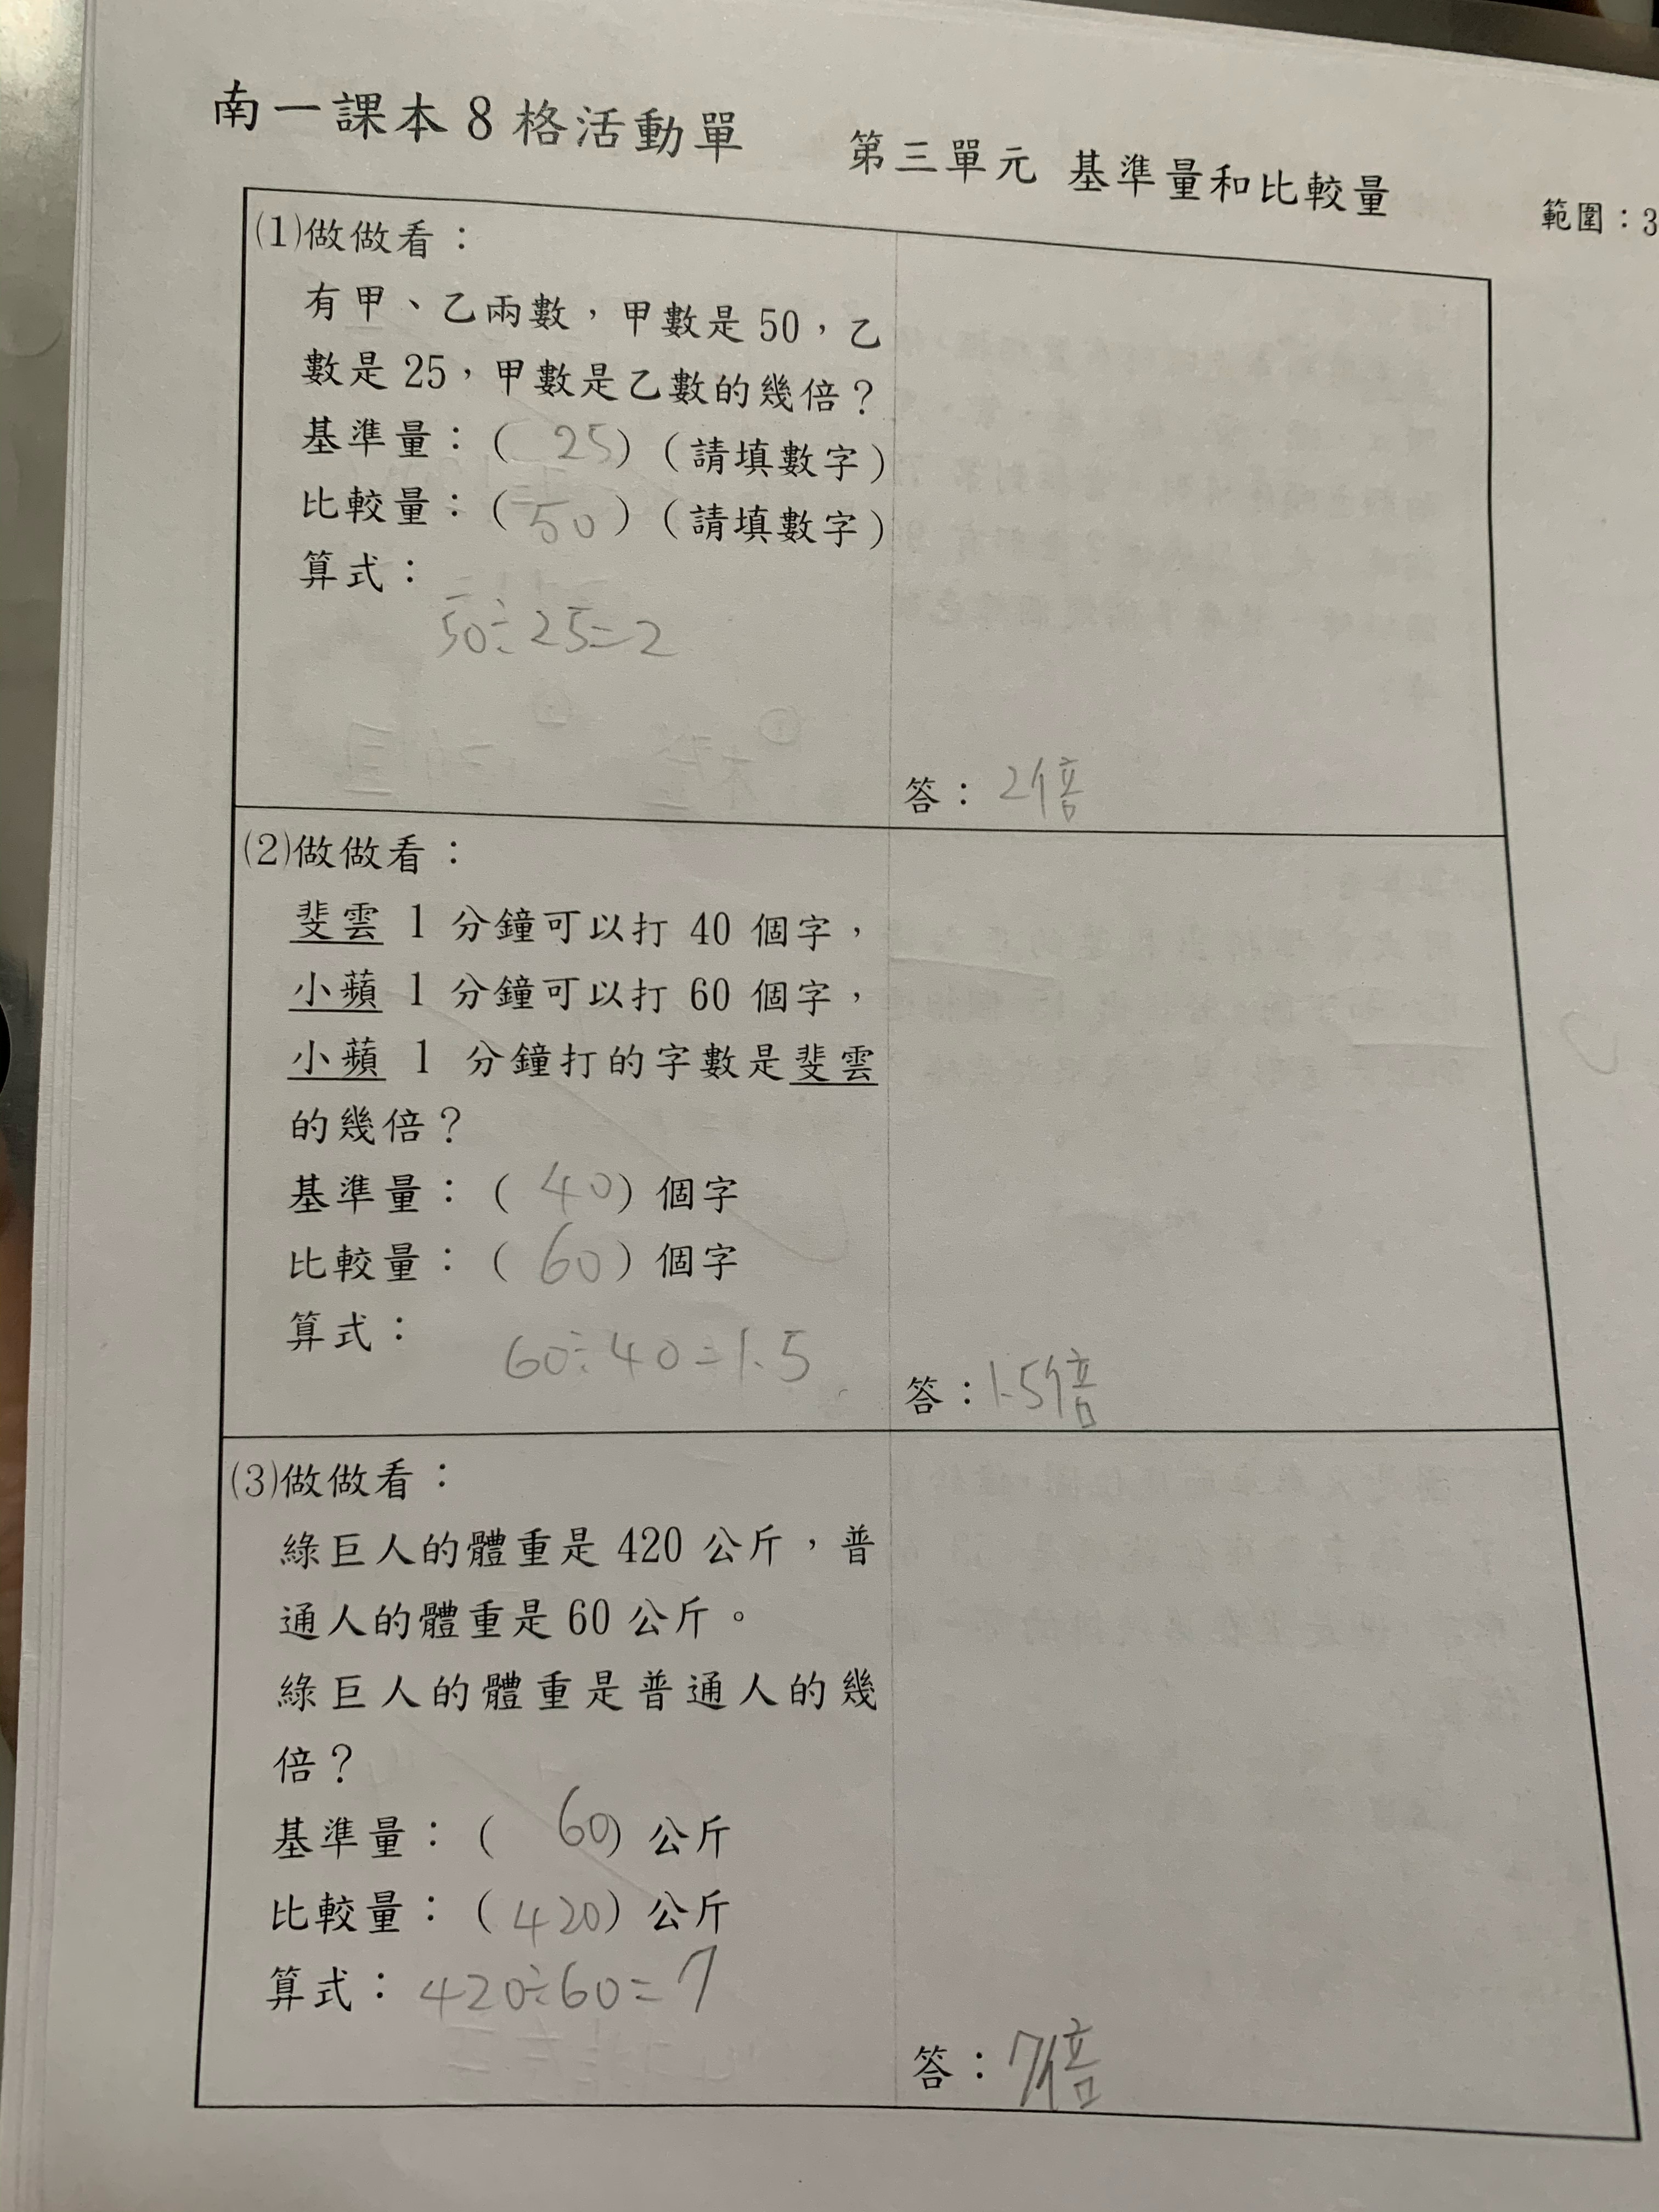 南一課本 8 格活動單 第三單元 基準量和比較量 範圍：3
(1)做做看：
有甲、乙兩數，甲數是 50，乙
數是 25，甲數是乙數的幾倍？
基準量：( 25 )（請填數字）
比較量：( 50 )（請填數字）
算式：
50÷25=2
答： 2倍
(2)做做看：
斐雲 1 分鐘可以打 40 個字，
小蘋 1 分鐘可以打 60 個字，
小蘋 1 分鐘打的字數是斐雲
的幾倍？
基準量：( 40 ) 個字
比較量：( 60 ) 個字
算式：
60÷40=1.5
答：1.5倍
(3)做做看：
綠巨人的體重是 420 公斤，普
通人的體重是 60 公斤。
綠巨人的體重是普通人的幾
倍？
基準量：( 60 ) 公斤
比較量：( 420 ) 公斤
算式：420÷60=7
答：7倍